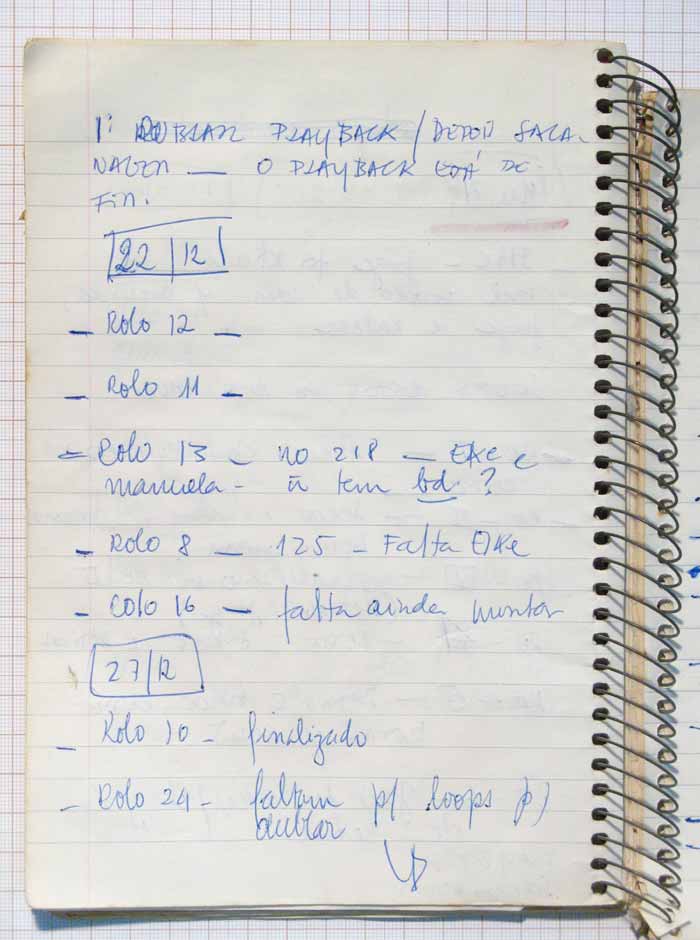 1º DUBLAR PLAYBACK / DEPOIS SACA
NAGEM — O PLAYBACK ESTÁ DE
FIN.
22 | 12
– Rolo 12 –
– Rolo 11 –
– Rolo 13 – no 218 – EKE e
manuela – ñ tem bd ?
– Rolo 8 – 125 – Falta EKe
– Rolo 16 – falta ainda montar
27 | 12
– Rolo 10 – finalizado
– Rolo 24 – faltam p/ loops p/
dublar